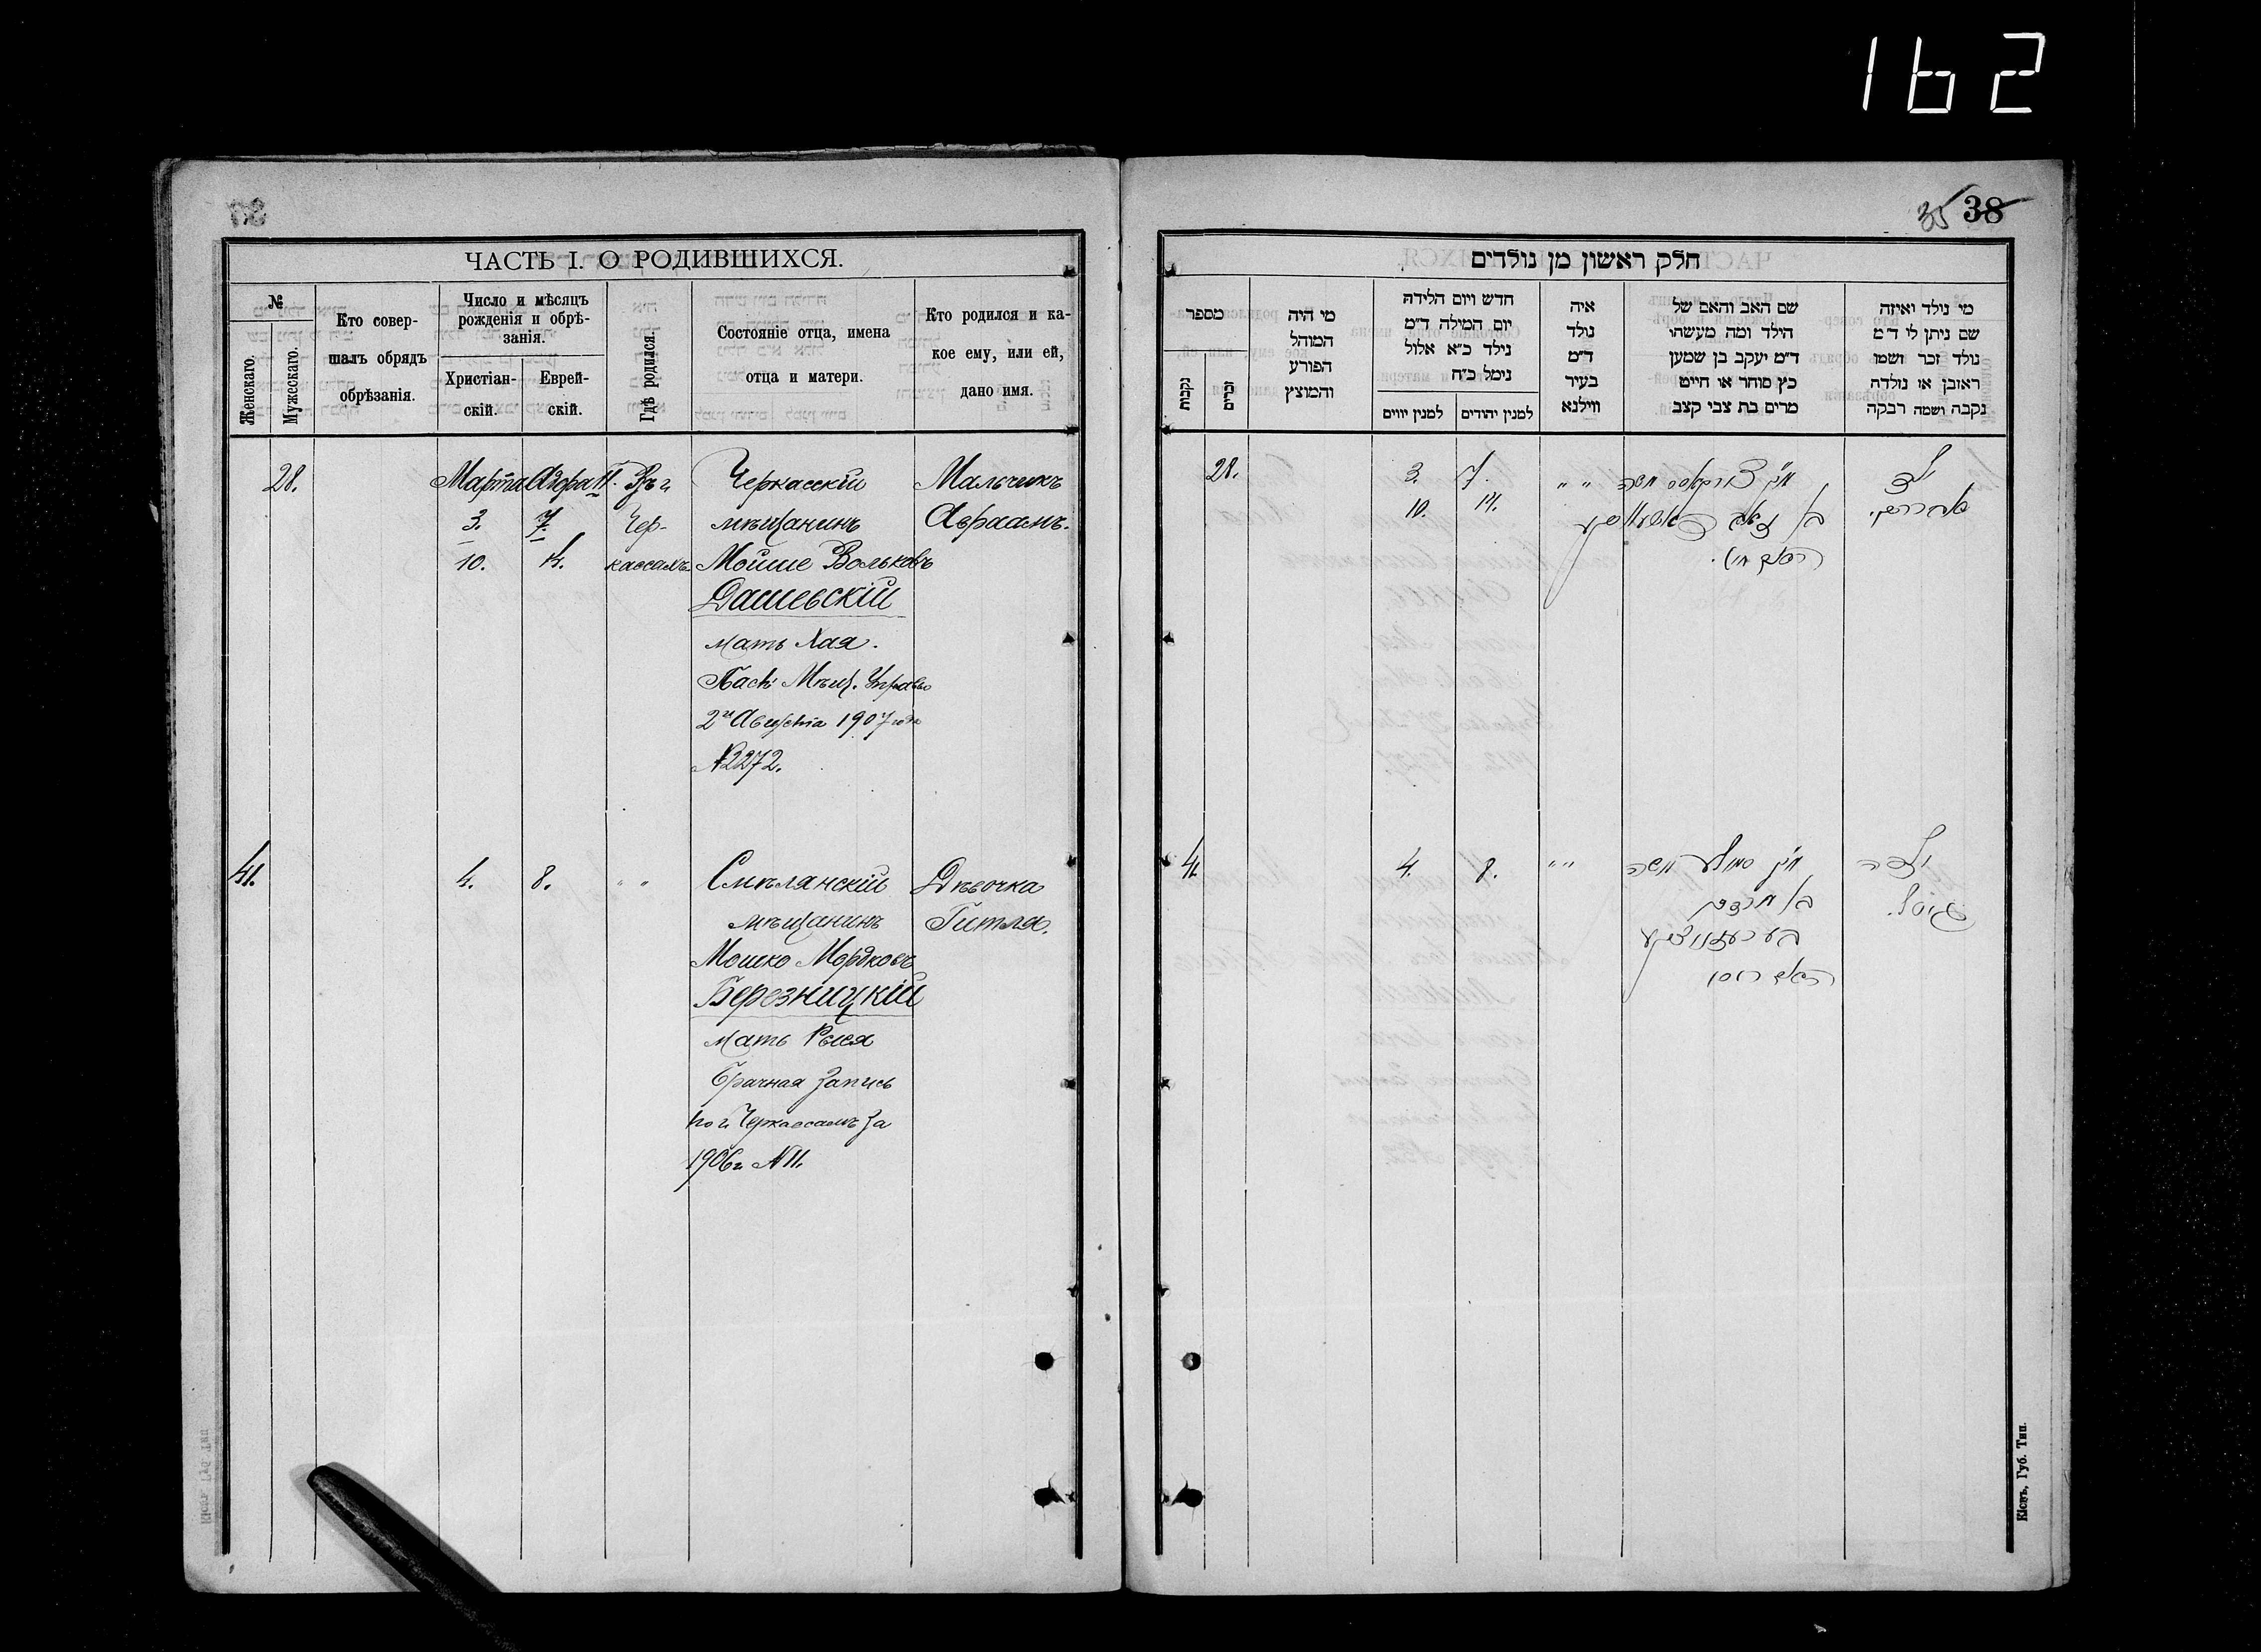 162
ЧАСТЬ I. О РОДИВШИХСЯ.
№
Женскаго.
Мужескаго.
Кто совер-
шалъ обрядъ
обрѣзанія.
Число и мѣсяцъ
рожденія и обрѣ-
занія.
Христіан-
скій.
Еврей-
скій.
Гдѣ родился.
Состояніе отца, имена
отца и матери.
Кто родился и ка-
кое ему, или ей,
дано имя.
28.
Марта
3.
10.
Адора II.
7.
14.
Въ г.
Чер-
кассахъ.
Черкасскій
мѣщанинъ
Мойше Вольковъ
Дашевскій
мать Хая.
Мѣщ. Управы
2го Августа 1907 года
№2272.
Мальчикъ
Авраамъ.
41.
4.
8.
" "
Смѣлянскій
мѣщанинъ
Мошко Мордковъ
Березницкій
мать Рыся
Брачная запись
по г. Черкассамъ за
1906 г. №11.
Дѣвочка
Гитля.
35 38
חלק ראשון מן נולדים
מספר
נקבות
זכרים
מי היה
המוהל
הפורע
והמוצץ
חדש ויום הלידה
יום המילה ד״מ
נילד כ״א אלול
נימל כ״ח
למנין יווים
למנין יהודים
איה
נולד
ד״מ
בעיר
ווילנא
שם האב והאם של
הילד ומה מעשהו
ד״מ יעקב בן שמען
כץ סוחר או חייט
מרים בת צבי קצב
מי נולד ואיזה
שם ניתן לו ד״מ
נולד זכר ושמו
ראובן או נולדה
נקבה ושמה רבקה
28.
3.
10.
7.
14.
" "
ילד
41.
4.
8.
" "
בן מרדכי
ילדה
Кіевъ, Губ. Тип.